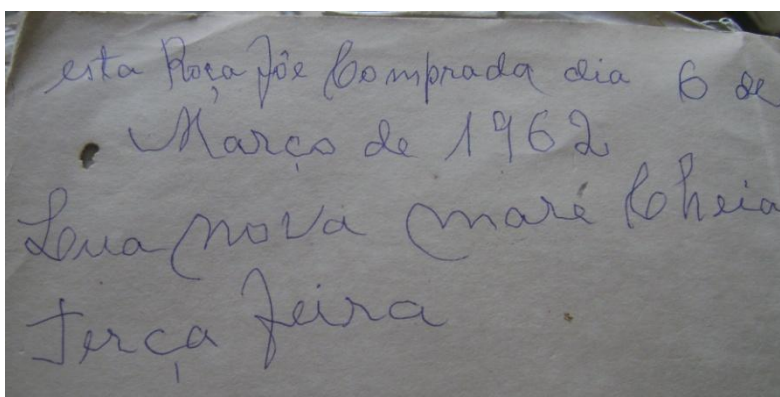 esta Roça fôe Comprada dia 6 de
Março de 1962
Lua nova maré Cheia
terça feira